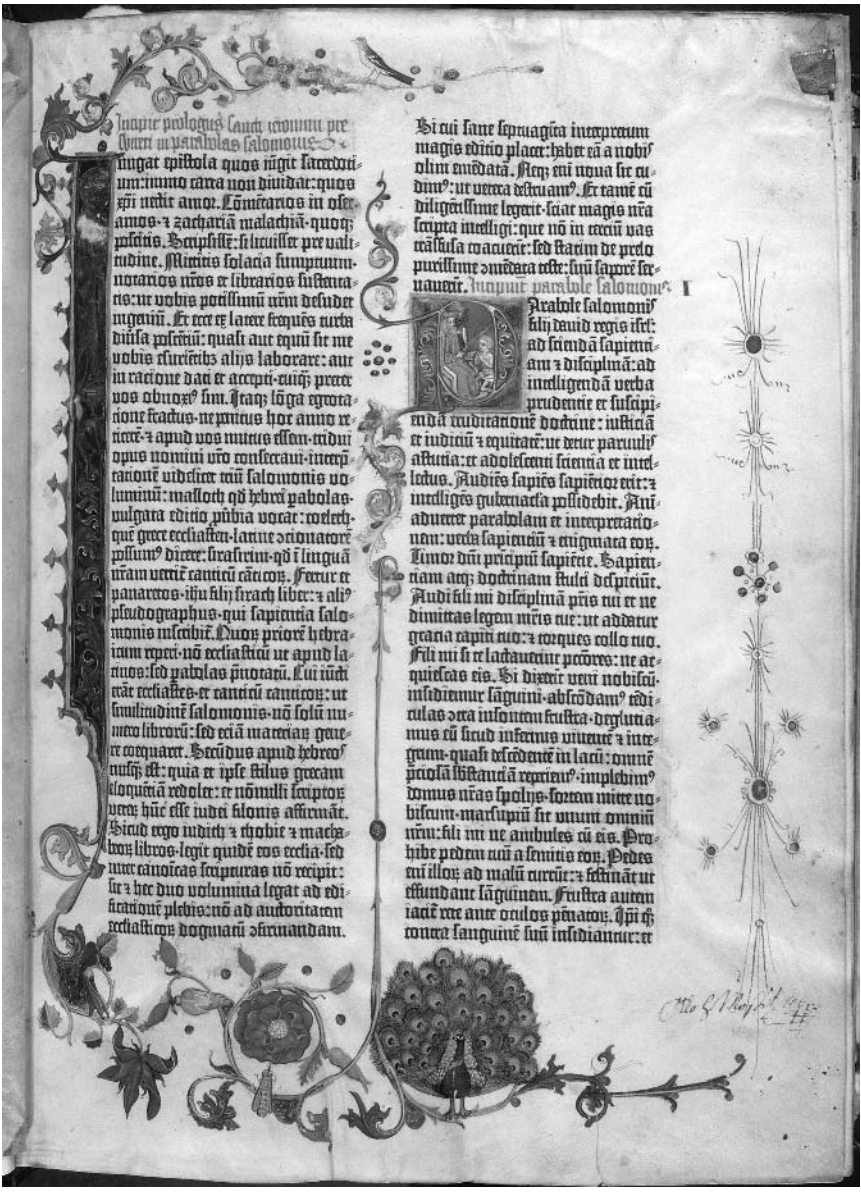 Incipit prologus sancti ieronimi pre
sbiteri in parabolas salomonis
Iungat epistola quos iūgit sacerdoti⸗
um: immo carta non diuidat: quos
xp̄i nectit amor. Cōmētarios in osee·
amos· ⁊ zachariā malachiā· quoqꝫ
poscitis. Scripsissē: si licuisset pre vali⸗
tudine. Mittitis solacia sumptuum·
notarios nr̄os et librarios sustenta⸗
tis: ut vobis potissimū nr̄m desudet
ingeniū. Et ecce eꝫ latere frequēs turba
diūsa poscētiū: quasi aut equū sit me
vobis esurientibꝫ alijs laborare: aut
in racione dati et accepti· cuiqꝫ preter
vos obnoxiꝰ sim. Itaqꝫ lōga egrota⸗
cione fractus· ne penitus hoc anno re⸗
ticerē· ⁊ apud vos mutus essem· tridui
opus nomini vr̄o consecraui· interp̄⸗
tationē videlicet triū salomonis vo⸗
luminū: masloth qd̄ hebrei ꝑabolas·
vulgata editio ꝓūbia vocat: coeleth·
quē grece ecclesiasten· latine ꝯcionatorē
possumꝰ dicere: sirasirim· qd̄ ī linguā
nr̄am vertit̄ canticū cāticoꝝ. Fertur et
panaretos· ihū filij sirach liber: ⁊ aliꝰ
pseudographus· qui sapientia salo⸗
monis inscribit̄. Quoꝝ priorē hebra⸗
icum reperi· nō ecclesiasticū ut apud la⸗
tinos: sed ꝑabolas p̄notatū. Cui iūcti
erāt ecclesiastes· et canticū canticoꝝ: ut
similitudinē salomonis· nō solū nu⸗
mero librorū: sed eciā materiaꝝ gene⸗
re coequaret. Secūdus apud hebreos
nusqꝫ est: quia et ipse stilus grecam
eloquētiā redolet: et nōnulli scriptoꝝ
veteꝝ hūc esse iudei filonis affirmāt.
Sicud ergo iudith ⁊ thobie ⁊ macha⸗
beoꝝ libros· legit quidē eos ecclesia· sed
inter canoīcas scripturas nō recipit:
sic ⁊ hec duo volumina legat ad edi⸗
ficationē plebis: nō ad auctoritatem
ecclesiasticoꝝ dogmatū ꝯfirmandam.
Si cui sane septuagīta interpretum
magis editio placet: habet eā a nobis
olim emēdatā. Neqꝫ eni nova sic cu⸗
dimꝰ: ut vetera destruamꝰ. Et tamē cū
diligētissime legerit· sciat magis nr̄a
scripta intelligi: que nō in terciū vas
trāsfusa coacuerīt: sed statim de prelo
purissime ꝯmēdata teste: suū saporē ser⸗
uauerīt. Incipiūt parabole salomonis
I
Parabole salomonis
filij dauid regis isrl̄:
ad sciendā sapienti⸗
am ⁊ disciplinā: ad
intelligendā verba
prudentie et suscipi⸗
endā eruditationē doctrine: iusticiā
et iudiciū ⁊ equitatē: ut detur paruulis
astutia: et adolescenti scientia et intel⸗
lectus. Audiēs sapiēs sapiētior erit: ⁊
intelligēs gubernacla possidebit. Ani⸗
aduertet parabolam et interpretatio⸗
nem: verba sapientiū ⁊ enigmata eoꝝ.
Timor dn̄i principiū sapiētie. Sapien⸗
tiam atqꝫ doctrinam stulti despiciūt.
Audi fili mi disciplinā p̄ris tui et ne
dimittas legem mr̄is tue: ut addatur
gracia capiti tuo: ⁊ torques collo tuo.
Fili mi si te lactauerint pctōres: ne ac⸗
quiescas eis. Si dixerīt veni nobiscū·
insidiemur sāguini· abscōdamꝰ tēdi⸗
culas ꝯtra insontem frustra· deglutia⸗
mus eū sicud infernus viuentē ⁊ inte⸗
grum· quasi descēdentē in lacū: omnē
p̄ciosā sb̄stanciā reperiemꝰ· implebimꝰ
domus nr̄as spolijs· sortem mitte no⸗
biscum· marsupiū sit unum omniū
nr̄m: fili mi ne ambules cū eis. Pro⸗
hibe pedem tuū a semitis eoꝝ. Pedes
eni illoꝝ ad malū currūt: ⁊ festināt ut
effundant sāguinem. Frustra autem
iacit̄ rete ante oculos pēnatoꝝ. Ipi qꝫ
contra sanguinē suū insidiantur: et